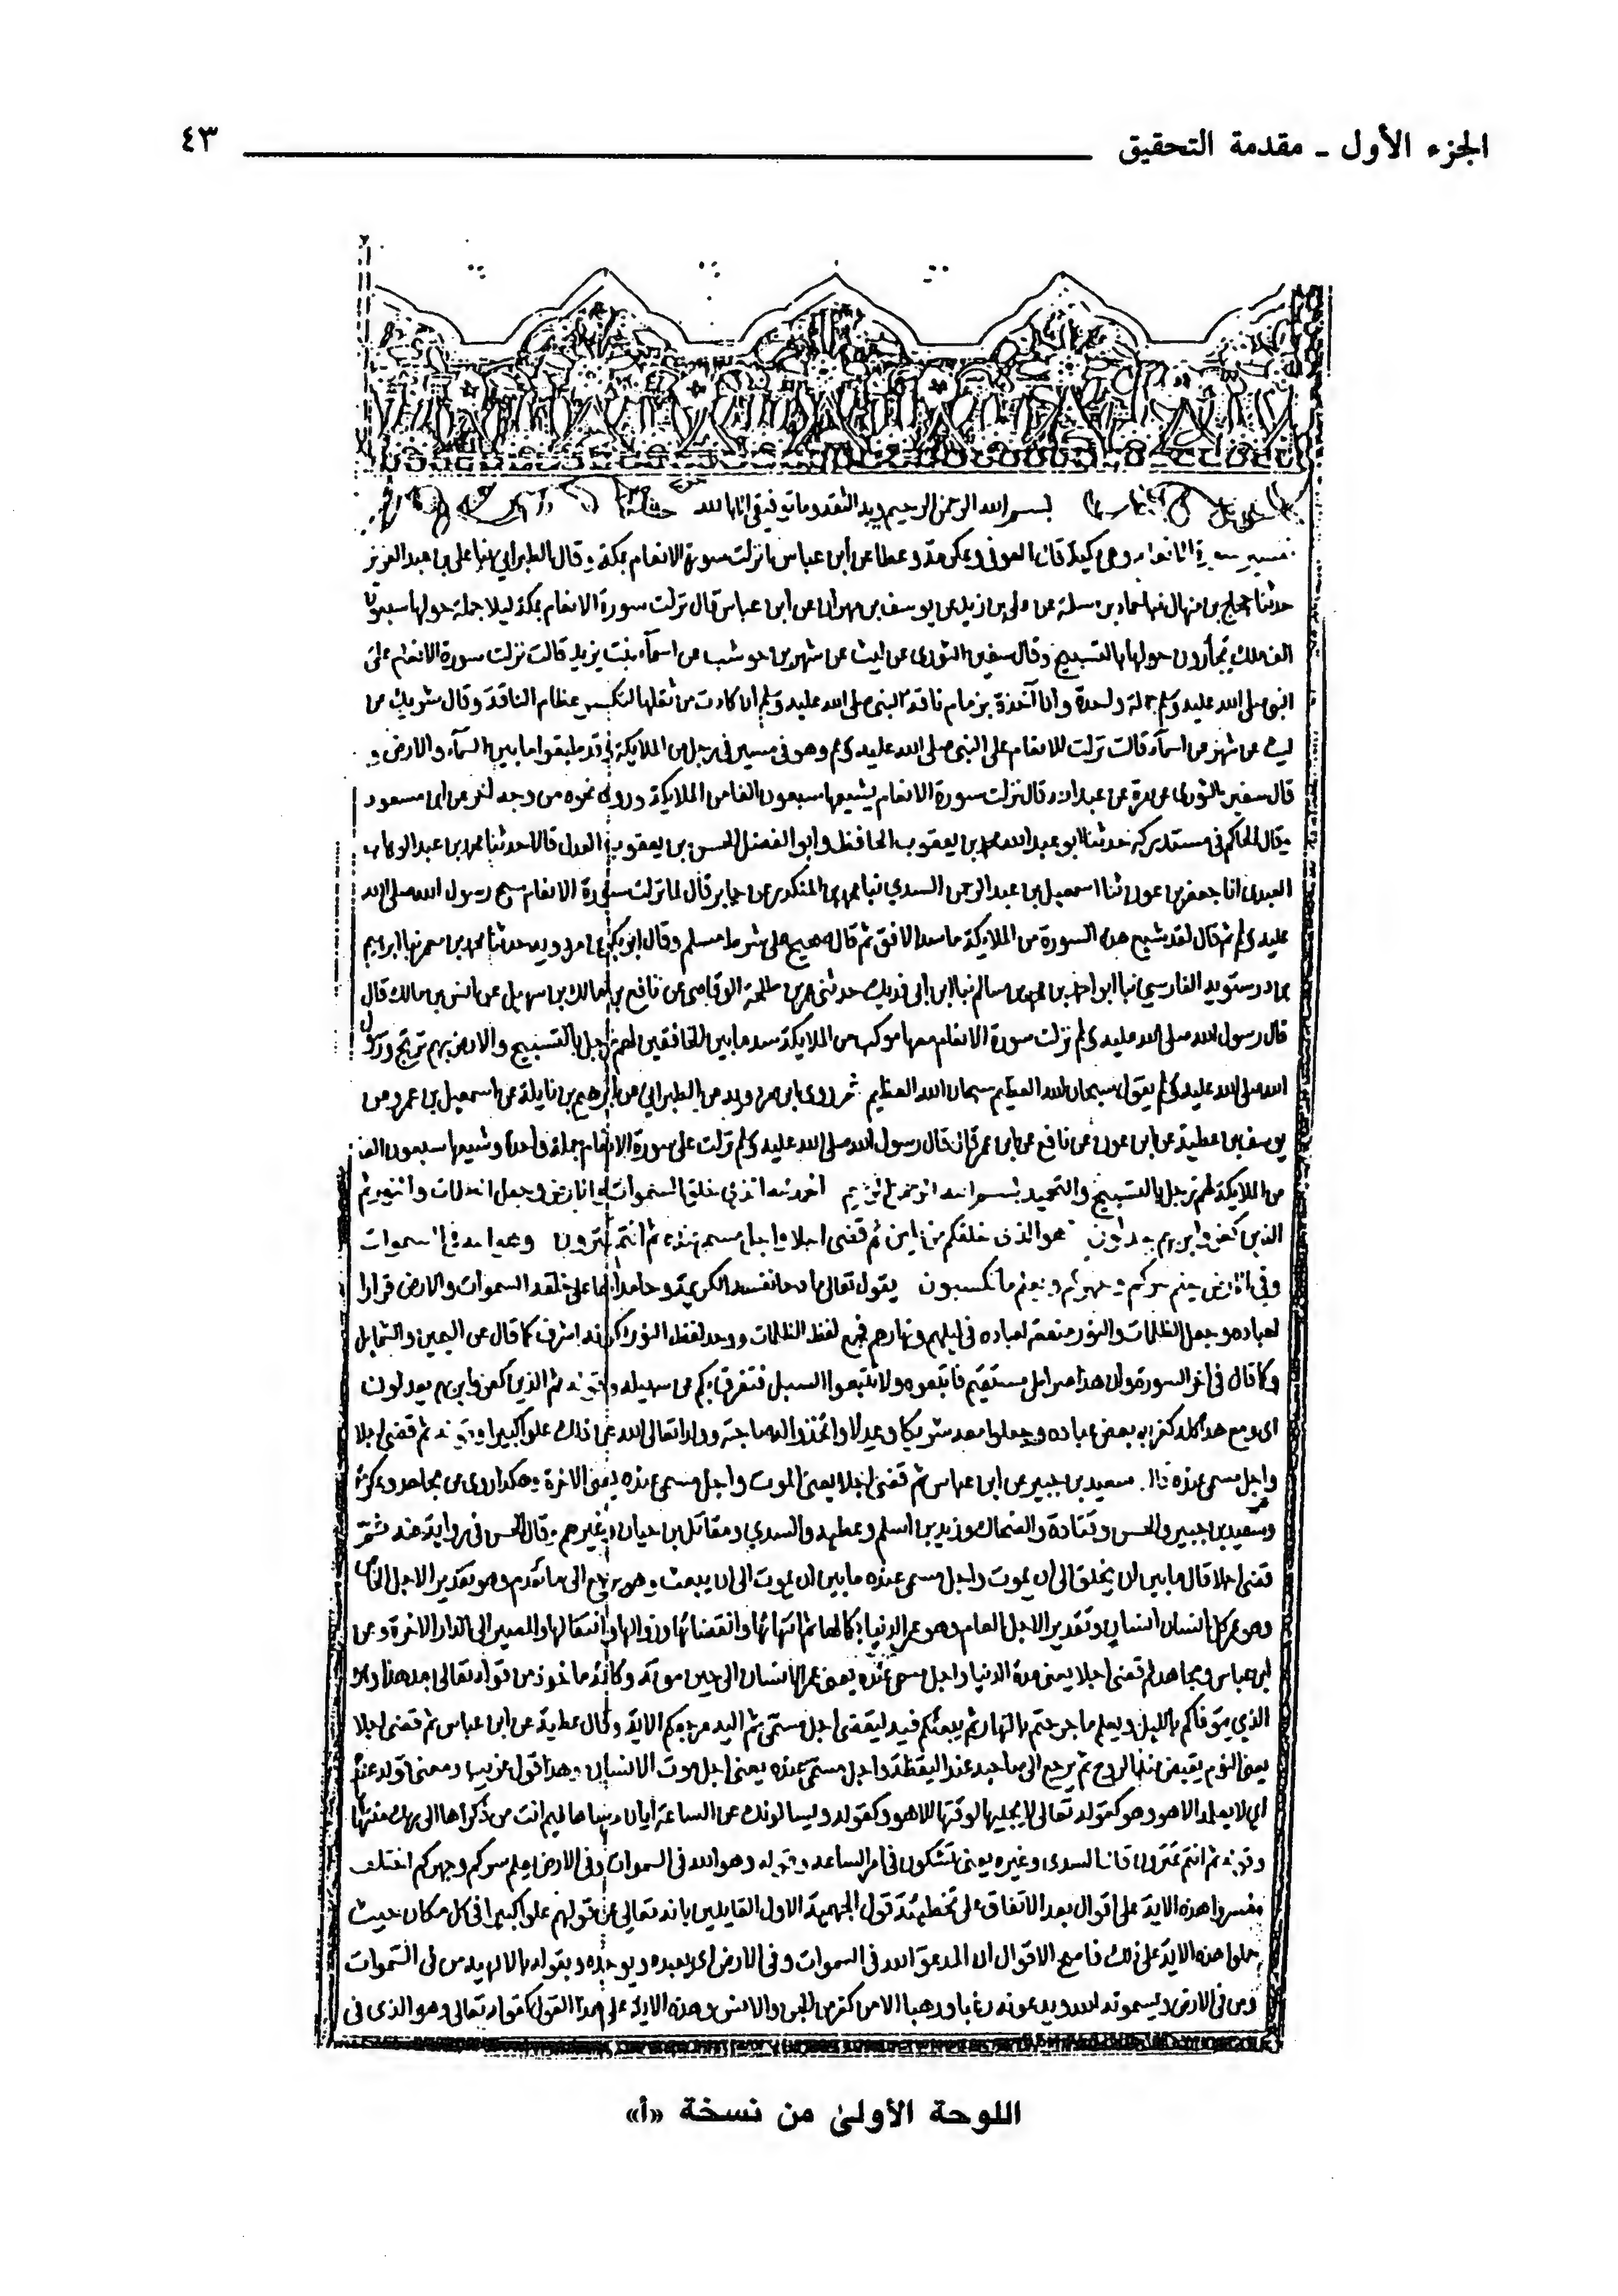 الجزء الأول ـ مقدمة التحقيق ٤٣
بسم الله الرحمن الرحيم وبه الثقة وما توفيقي الا بالله
تفسير سورة الانعام وهي مكية قال العوفي وعكرمة وعطا عن ابن عباس انزلت سورة الانعام بمكة وقال الطبراني ثنا علي بن عبد العزيز
حدثنا حجاج بن منهال ثنا حماد بن سلمة عن علي بن زيد عن يوسف بن مهران عن ابن عباس قال نزلت سورة الانعام بمكة ليلا جملة حولها سبعون
الف ملك يجأرون حولها بالتسبيح وقال سفين الثوري عن ليث عن شهر بن حوشب عن اسمآء بنت يزيد قالت نزلت سورة الانعام على
النبي صلى الله عليه وسلم جملة واحدة وانا آخذة بزمام ناقة النبي صلى الله عليه وسلم ان كادت من ثقلها لتكسر عظام الناقة وقال شريك عن
ليث عن شهر عن اسمآء قالت نزلت الانعام على النبي صلى الله عليه وسلم وهو في مسير في زجل من الملايكة وقد طبقوا ما بين السمآء والارض و
قال سفين الثوري عن مرة عن عبد الله قال نزلت سورة الانعام يشيعها سبعون الفا من الملايكة وروي نحوه من وجه اخر عن ابن مسعود
وقال الحاكم في مستدركه حدثنا ابو عبد الله محمد بن يعقوب الحافظ وابو الفضل الحسن بن يعقوب العدل قالا حدثنا محمد بن عبد الوهاب
العبدي انا جعفر بن عون ثنا اسمعيل بن عبد الرحمن السدي ثنا محمد بن المنكدر عن جابر قال لما نزلت سورة الانعام سبح رسول الله صلى الله
عليه وسلم ثم قال لقد شيع هذه السورة من الملايكة ما سد الافق ثم قال صحيح على شرط مسلم وقال ابو بكر بن مردويه حدثنا محمد بن معمر ثنا ابراهيم
بن درستويه الفارسي ثنا ابو بكر احمد بن محمد بن سالم ثنا ابن ابي فديك حدثني عمر بن طلحة الوقاصي عن نافع بن مالك بن سهيل عن انس بن مالك قال
قال رسول الله صلى الله عليه وسلم نزلت سورة الانعام معها موكب من الملايكة سد ما بين الخافقين لهم زجل بالتسبيح والارض بهم ترتج ورسول
الله صلى الله عليه وسلم يقول سبحان الله العظيم سبحان الله العظيم ثم روى ابن مردويه عن الطبراني عن ابرهيم بن نايلة عن اسمعيل بن عمرو عن
يوسف بن عطية عن ابن عون عن نافع عن ابن عمر قال قال رسول الله صلى الله عليه وسلم نزلت علي سورة الانعام جملة واحدة وشيعها سبعون الف
من الملايكة لهم زجل بالتسبيح والتحميد بسم الله الرحمن الرحيم الحمد لله الذي خلق السموات والارض وجعل الظلمات والنور ثم
الذين كفروا بربهم يعدلون هو الذي خلقكم من طين ثم قضى اجلا واجل مسمى عنده ثم انتم تمترون وهو الله في السموات
وفي الارض يعلم سركم وجهركم ويعلم ما تكسبون يقول تعالى مادحا نفسه الكريمة وحامدا لها على خلقه السموات والارض قرارا
لعباده وجعل الظلمات والنور منفعة لعباده في ليلهم ونهارهم فجمع لفظ الظلمات ووحد لفظ النور لكونه اشرف كما قال عن اليمين والشمايل
وكما قال في اخر السورة وان هذا صراطي مستقيم فاتبعوه ولا تتبعوا السبل فتفرق بكم عن سبيله وقوله ثم الذين كفروا بربهم يعدلون
اي ومع هذا كله كفر به بعض عباده وجعلوا معه شريكا وعدلا واتخذوا له صاحبة وولدا تعالى الله عن ذلك علوا كبيرا وقوله ثم قضى اجلا
واجل مسمى عنده قال سعيد بن جبير عن ابن عباس ثم قضى اجلا يعني الموت واجل مسمى عنده يعني الاخرة وهكذا روي عن مجاهد وعكرمة
وسعيد بن جبير والحسن وقتادة والضحاك وزيد بن اسلم وعطية والسدي ومقاتل بن حيان وغيرهم وقال الحسن في رواية عنه ثم
قضى اجلا قال ما بين ان يخلق الى ان يموت واجل مسمى عنده ما بين ان يموت الى ان يبعث وهو يرجع الى ما تقدم وهو تقدير الاجل الخاص
وهو عمر كل انسان وتقدير الاجل العام وهو عمر الدنيا بكمالها ثم انتهائها وانقضائها وزوالها وانتقالها والمصير الى الدار الاخرة وعن
ابن عباس ومجاهد ثم قضى اجلا يعني مدة الدنيا واجل مسمى عنده يعني عمر الانسان الى حين موته وكانه ماخوذ من قوله تعالى بعد هذا وهو
الذي يتوفاكم بالليل ويعلم ما جرحتم بالنهار ثم يبعثكم فيه ليقضى اجل مسمى ثم اليه مرجعكم الاية وقال عطية عن ابن عباس ثم قضى اجلا
يعني النوم يقبض فيه الروح ثم يرجع الى صاحبه عند اليقظة واجل مسمى عنده يعني اجل موت الانسان وهذا قول غريب ومعنى قوله عنده
اي لا يعلمه الا هو وهو كقوله تعالى لا يجليها لوقتها الا هو وكقوله ويسالونك عن الساعة ايان مرساها فيم انت من ذكراها الى ربك منتهاها
وقوله ثم انتم تمترون قال السدي وغيره يعني تشكون في امر الساعة وقوله وهو الله في السموات وفي الارض يعلم سركم وجهركم اختلف
مفسروا هذه الاية على اقوال بعد الاتفاق على تخطئة قول الجهمية الاول القايلين بانه تعالى عن قولهم علوا كبيرا في كل مكان حيث
حملوا هذه الاية على ذلك فاصح الاقوال ان المدعو الله في السموات وفي الارض اي يعبده ويوحده ويقر له بالالهية من في السموات
ومن في الارض ويسمونه الله ويدعونه رغبا ورهبا الا من كفر من الجن والانس وهذه الاية على هذا القول كقوله تعالى وهو الذي في
اللوحة الأولىٰ من نسخة «أ»